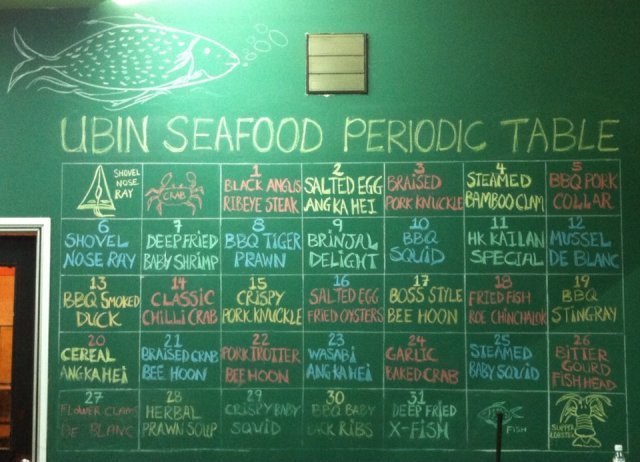 UBIN SEAFOOD PERIODIC TABLE
SHOVEL
NOSE
RAY
CRAB
1
BLACK ANGUS
RIBEYE STEAK
2
SALTED EGG
ANGKA HEI
3
BRAISED
PORK KNUCKLE
4
STEAMED
BAMBOO CLAM
5
BBQ PORK
COLLAR
6
SHOVEL
NOSE RAY
7
DEEPFRIED
BABY SHRIMP
8
BBQ TIGER
PRAWN
9
BRINJAL
DELIGHT
10
BBQ
SQUID
11
HK KAILAN
SPECIAL
12
MUSSEL
DE BLANC
13
BBQ SMOKED
DUCK
14
CLASSIC
CHILLI CRAB
15
CRISPY
PORK KNUCKLE
16
SALTED EGG
FRIED OYSTERS
17
BOSS STYLE
BEE HOON
18
FRIED FISH
ROE CHINCHALOK
19
BBQ
STINGRAY
20
CEREAL
ANGKAHEI
21
BRAISED CRAB
BEE HOON
22
PORK TROTTER
BEE HOON
23
WASABI
ANGKA HEI
24
GARLIC
BAKED CRAB
25
STEAMED
BABY SQUID
26
BITTER
GOURD
FISH HEAD
27
FLOWER CLAM
DE BLANC
28
HERBAL
PRAWN SOUP
29
CRISPY BABY
SQUID
30
BBQ BABY
RIBS
31
DEEP FRIED
X-FISH
FISH
SLIPPER
LOBSTER